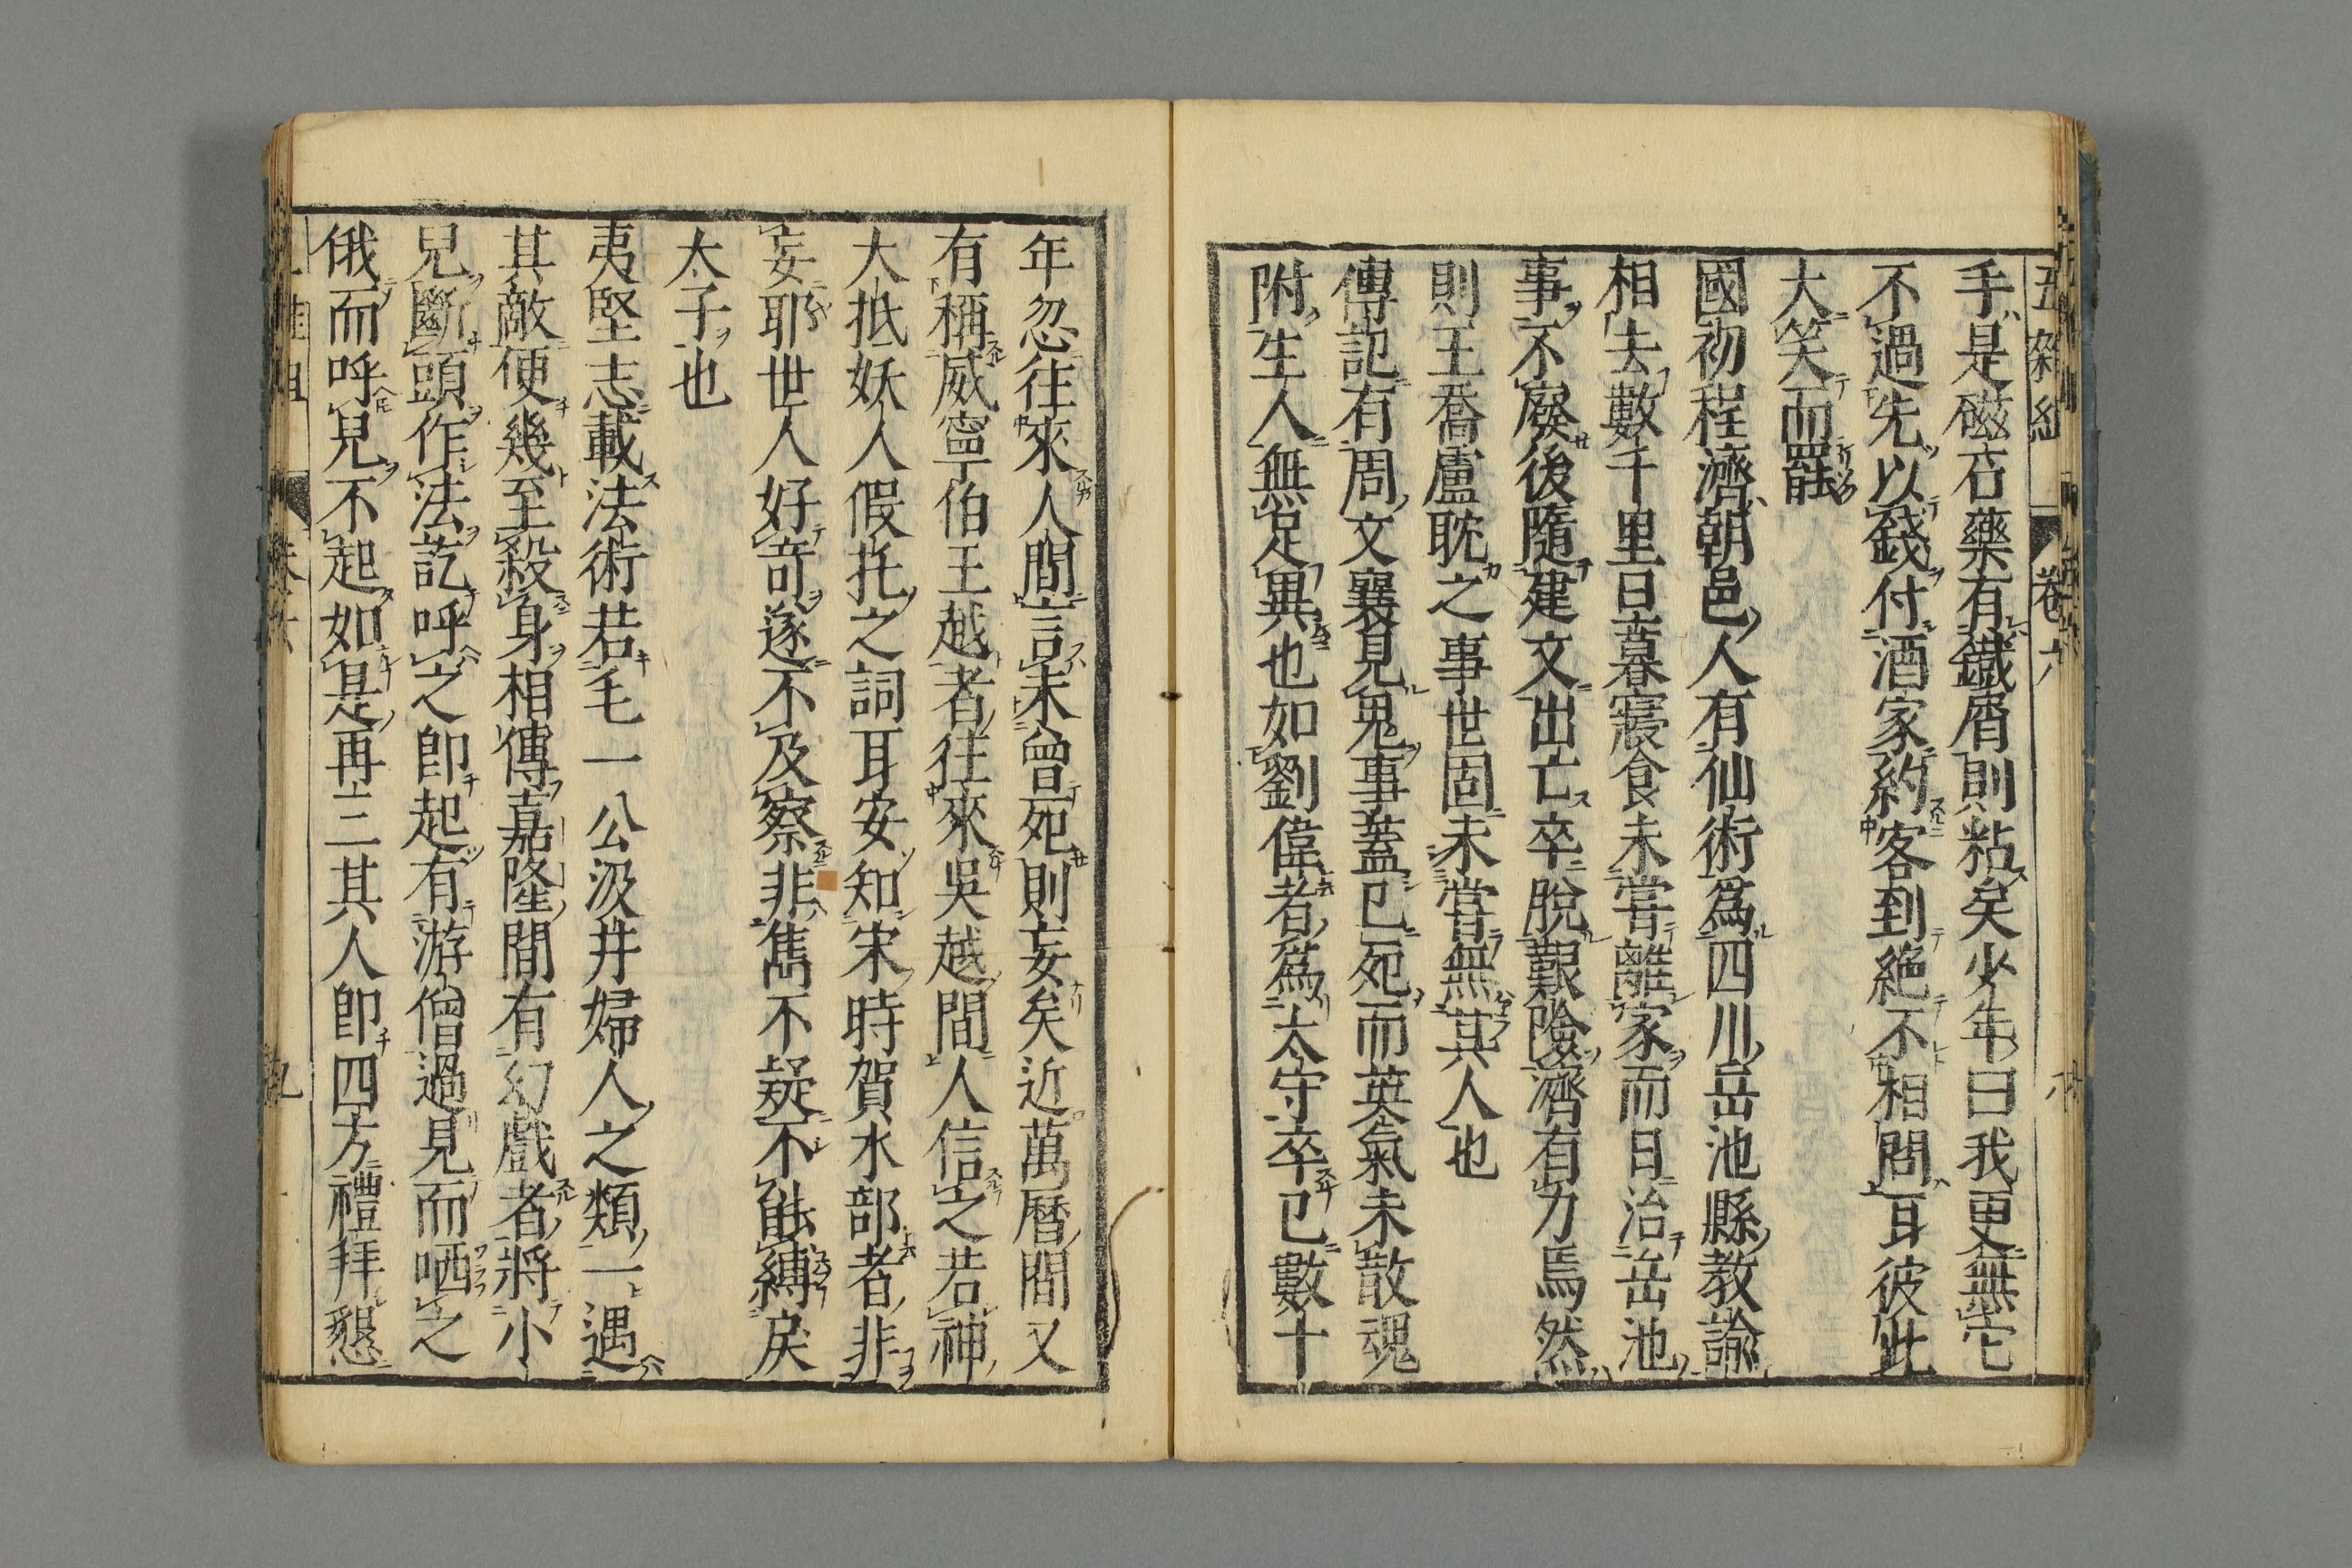 五雜組 卷六
手是磁石藥有鐵屑則粘矣少年曰我更無它
不過先以錢付酒家約客到絶不相問耳彼此
大笑而罷
國初程濟朝邑人有仙術爲四川岳池縣教諭
相去數千里日暮寢食未嘗離家而日治岳池
事不廢後隨建文出亡卒脫艱險濟有力焉然
則王喬盧耽之事世固未嘗無其人也
傳記有周文襄見鬼事蓋已死而英氣未散魂
附生人無足異也如劉偉者爲太守卒已數十
年忽往來人間言未曾死則妄矣近萬曆間又
有稱威寧伯王越者往來吳越間人信之若神
大抵妖人假托之詞耳安知宋時賀水部者非
妄耶世人好奇遂不及察非雋不疑不能縛戾
太子也
夷堅志載法術若毛一公汲井婦人之類一遇
其敵便幾至殺身相傳嘉隆間有幻戲者將小
兒斷頭作法訖呼之卽起有游僧過見而哂之
俄而呼兒不起如是再三其人卽四方禮拜懇